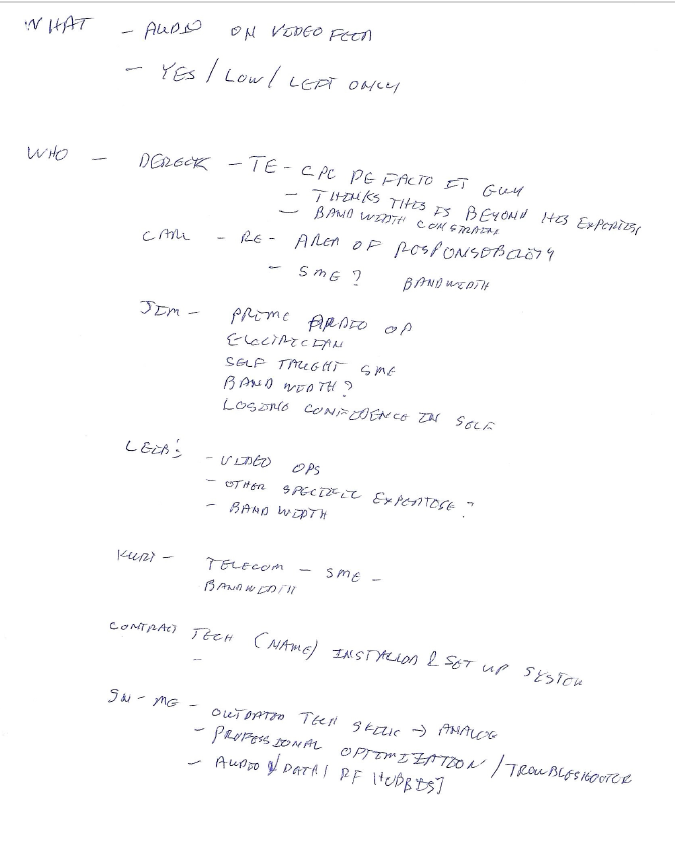 WHAT - AUDIO ON VIDEO FEED
- YES / LOW / LEFT ONLY
WHO - DERECK - TE - CPC DE FACTO IT GUY
- THINKS THIS IS BEYOND HIS EXPERTISE
- BAND WIDTH CONSTRAINT
CARL - RE - AREA OF RESPONSIBILITY
- SME? BANDWIDTH
JIM - PRIME AUDIO OP
ELECTRICIAN
SELF TAUGHT SME
BAND WIDTH?
LOSING CONFIDENCE IN SELF
- VIDEO OPS
- OTHER SPECIFIC EXPERTISE?
- BAND WIDTH
KURT - TELECOM - SME -
BANDWIDTH
CONTRACT TECH (NAME) INSTALLED & SET UP SYSTEM
-
- ME - OUTDATED TECH SKILL → ANALOG
- PROFESSIONAL OPTIMIZATION / TROUBLESHOOTER
- AUDIO / DATA / RF HOBBIST